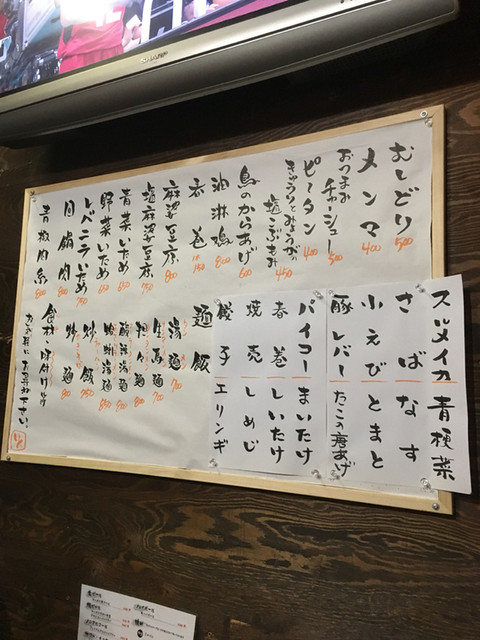 SHARP
むしどり 500
メンマ 400
おつまみチャーシュー 500
ピータン 400
きゅうりとみょうが
塩こぶもみ 450
鳥のからあげ 600
油淋鶏 800
春巻 150
麻婆豆腐 800
塩麻婆豆腐 750
青菜いため 650
野菜いため 650
レバニラいため 750
回鍋肉 800
青椒肉糸 800
麺飯
湯麺 700
担々麺 900
酸辣湯麺 850
炒飯 750
炒麺 90
食材・味付け等
お気軽にお尋ね下さい。
スルメイカ 青梗菜
さば なす
小えび とまと
豚レバー たこの唐あげ
パイコー まいたけ
春巻 しいたけ
焼売 しめじ
餃子 エリンギ